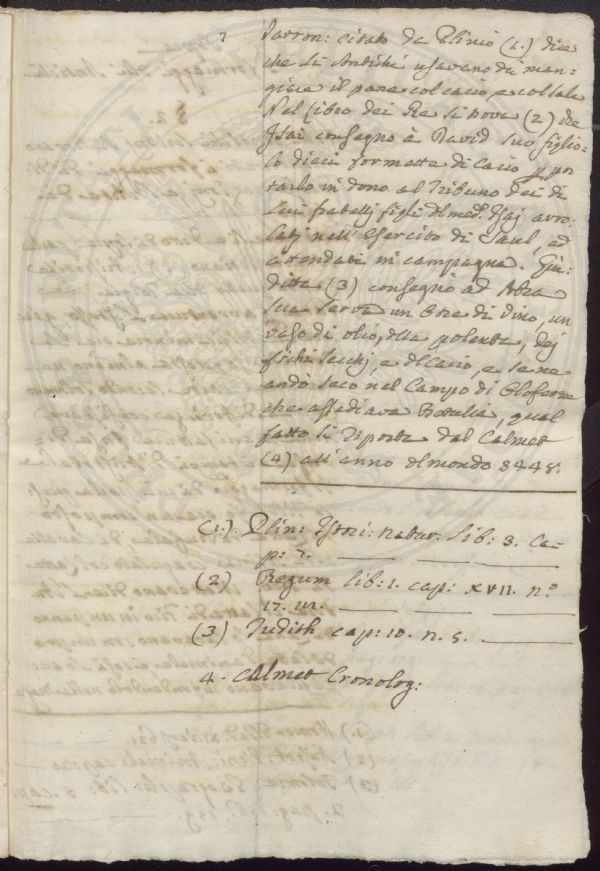 7
Varron: citato da Plinio (1.) dice
che li Antichi usavano di man=
giare il pane col cacio, e col sale
Nel libro dei Re si trova (2) che
Isai consegnò à David suo figlio=
lo dieci formette di Cacio p por
tarlo in dono al Tribuno dei di
lui fratelli figli del med. Isaj arro
latj nell'Esercito di Saul, ed
attendati in campagna. Giu=
ditta (3) consegnò ad Abra
sua serva un Otre di vino, un
vaso di olio, della polenta, dej
fichi secchj, e del Cacio, e se ne
andò seco nel Campo di Oloferne
che assediava Betulia, qual
fatto si riporta dal Calmet
(4) all'anno del mondo 3448.
(1.) Plin: Istori: natur. lib: 3. Ca-
p: 7.
(2) Regum lib: 1. cap: XVII. n.o
17.
(3) Judith cap: 10. n. 5.
4. Calmet Cronolog: